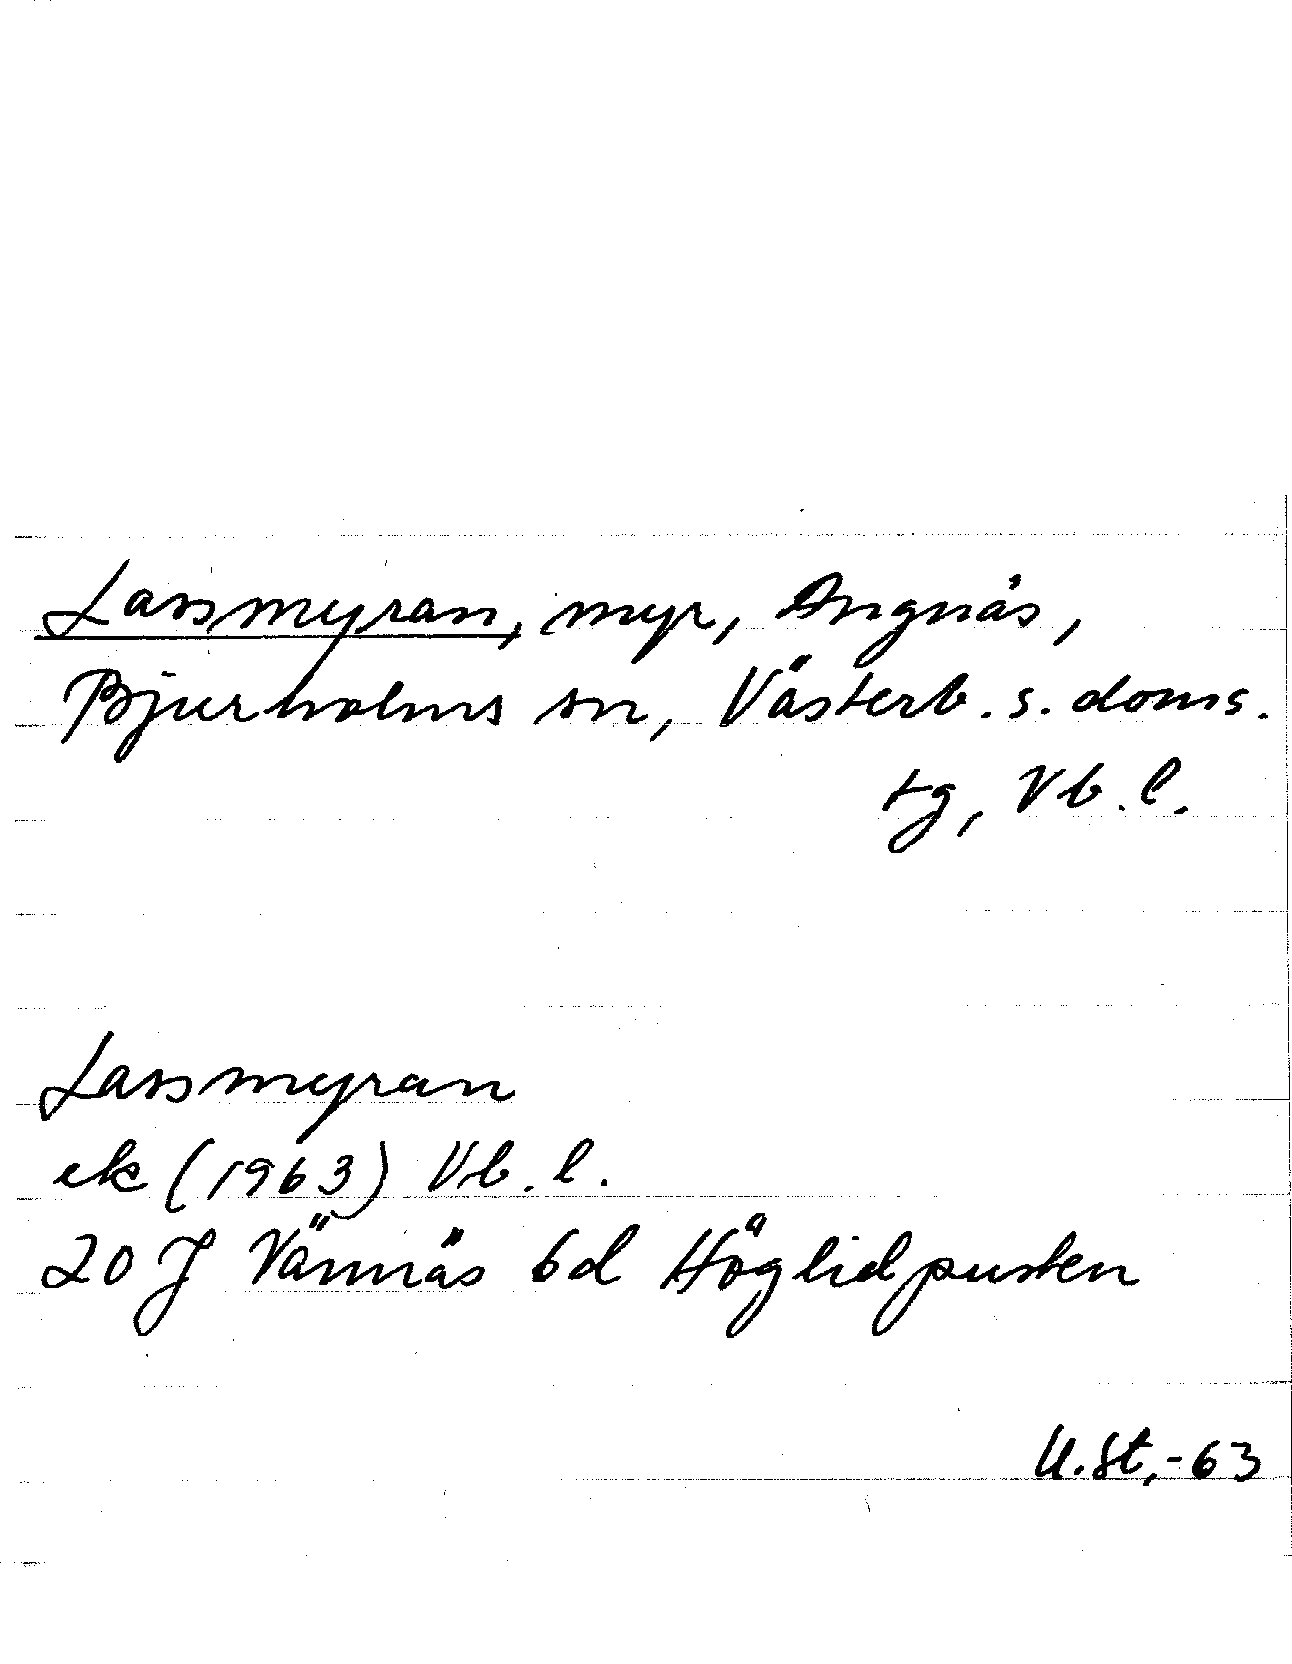 Lassmyran, myr, Angnäs,
Bjurholms sn, Västerb. s. doms.
tg, Vb. l.
Lassmyran
ek (1963) Vb. l.
20 J Vännäs 6d Höglidpusten
U. St, -63